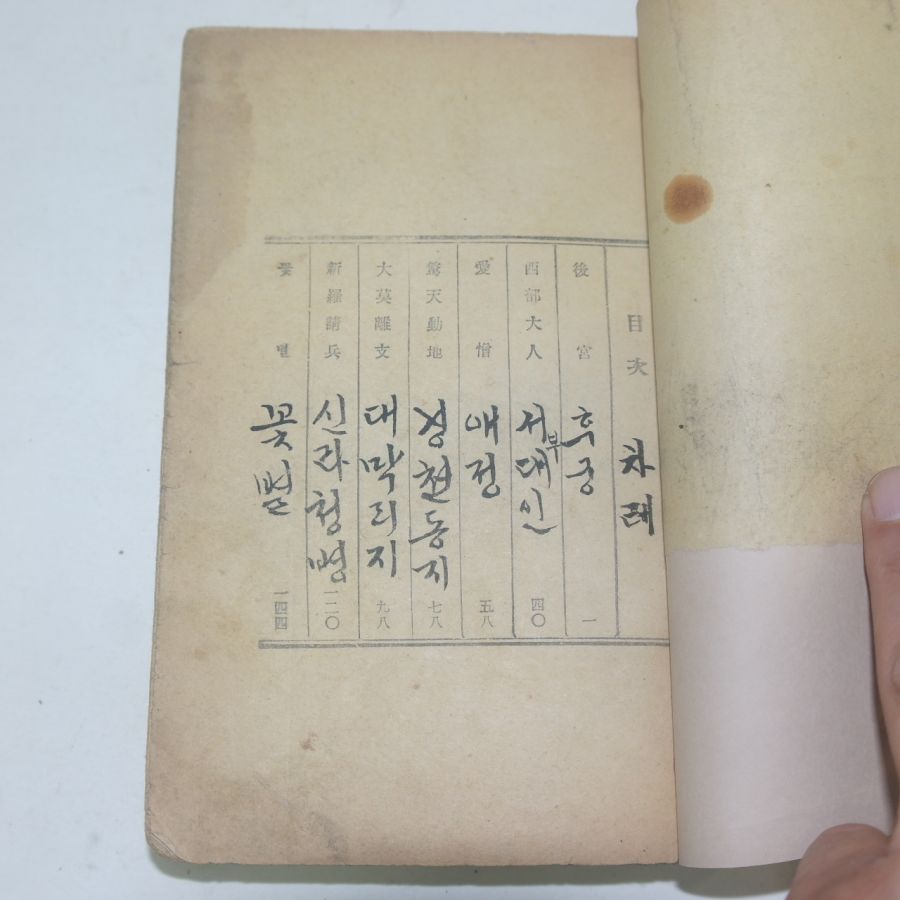 目次 차례
後宮 후궁 一
西部大人 서부대인 四〇
愛憎 애정 五八
驚天動地 경천동지 七八
大莫離支 대막리지 九八
新羅請兵 신라청병 一二〇
꽃별 꽃별 一四四